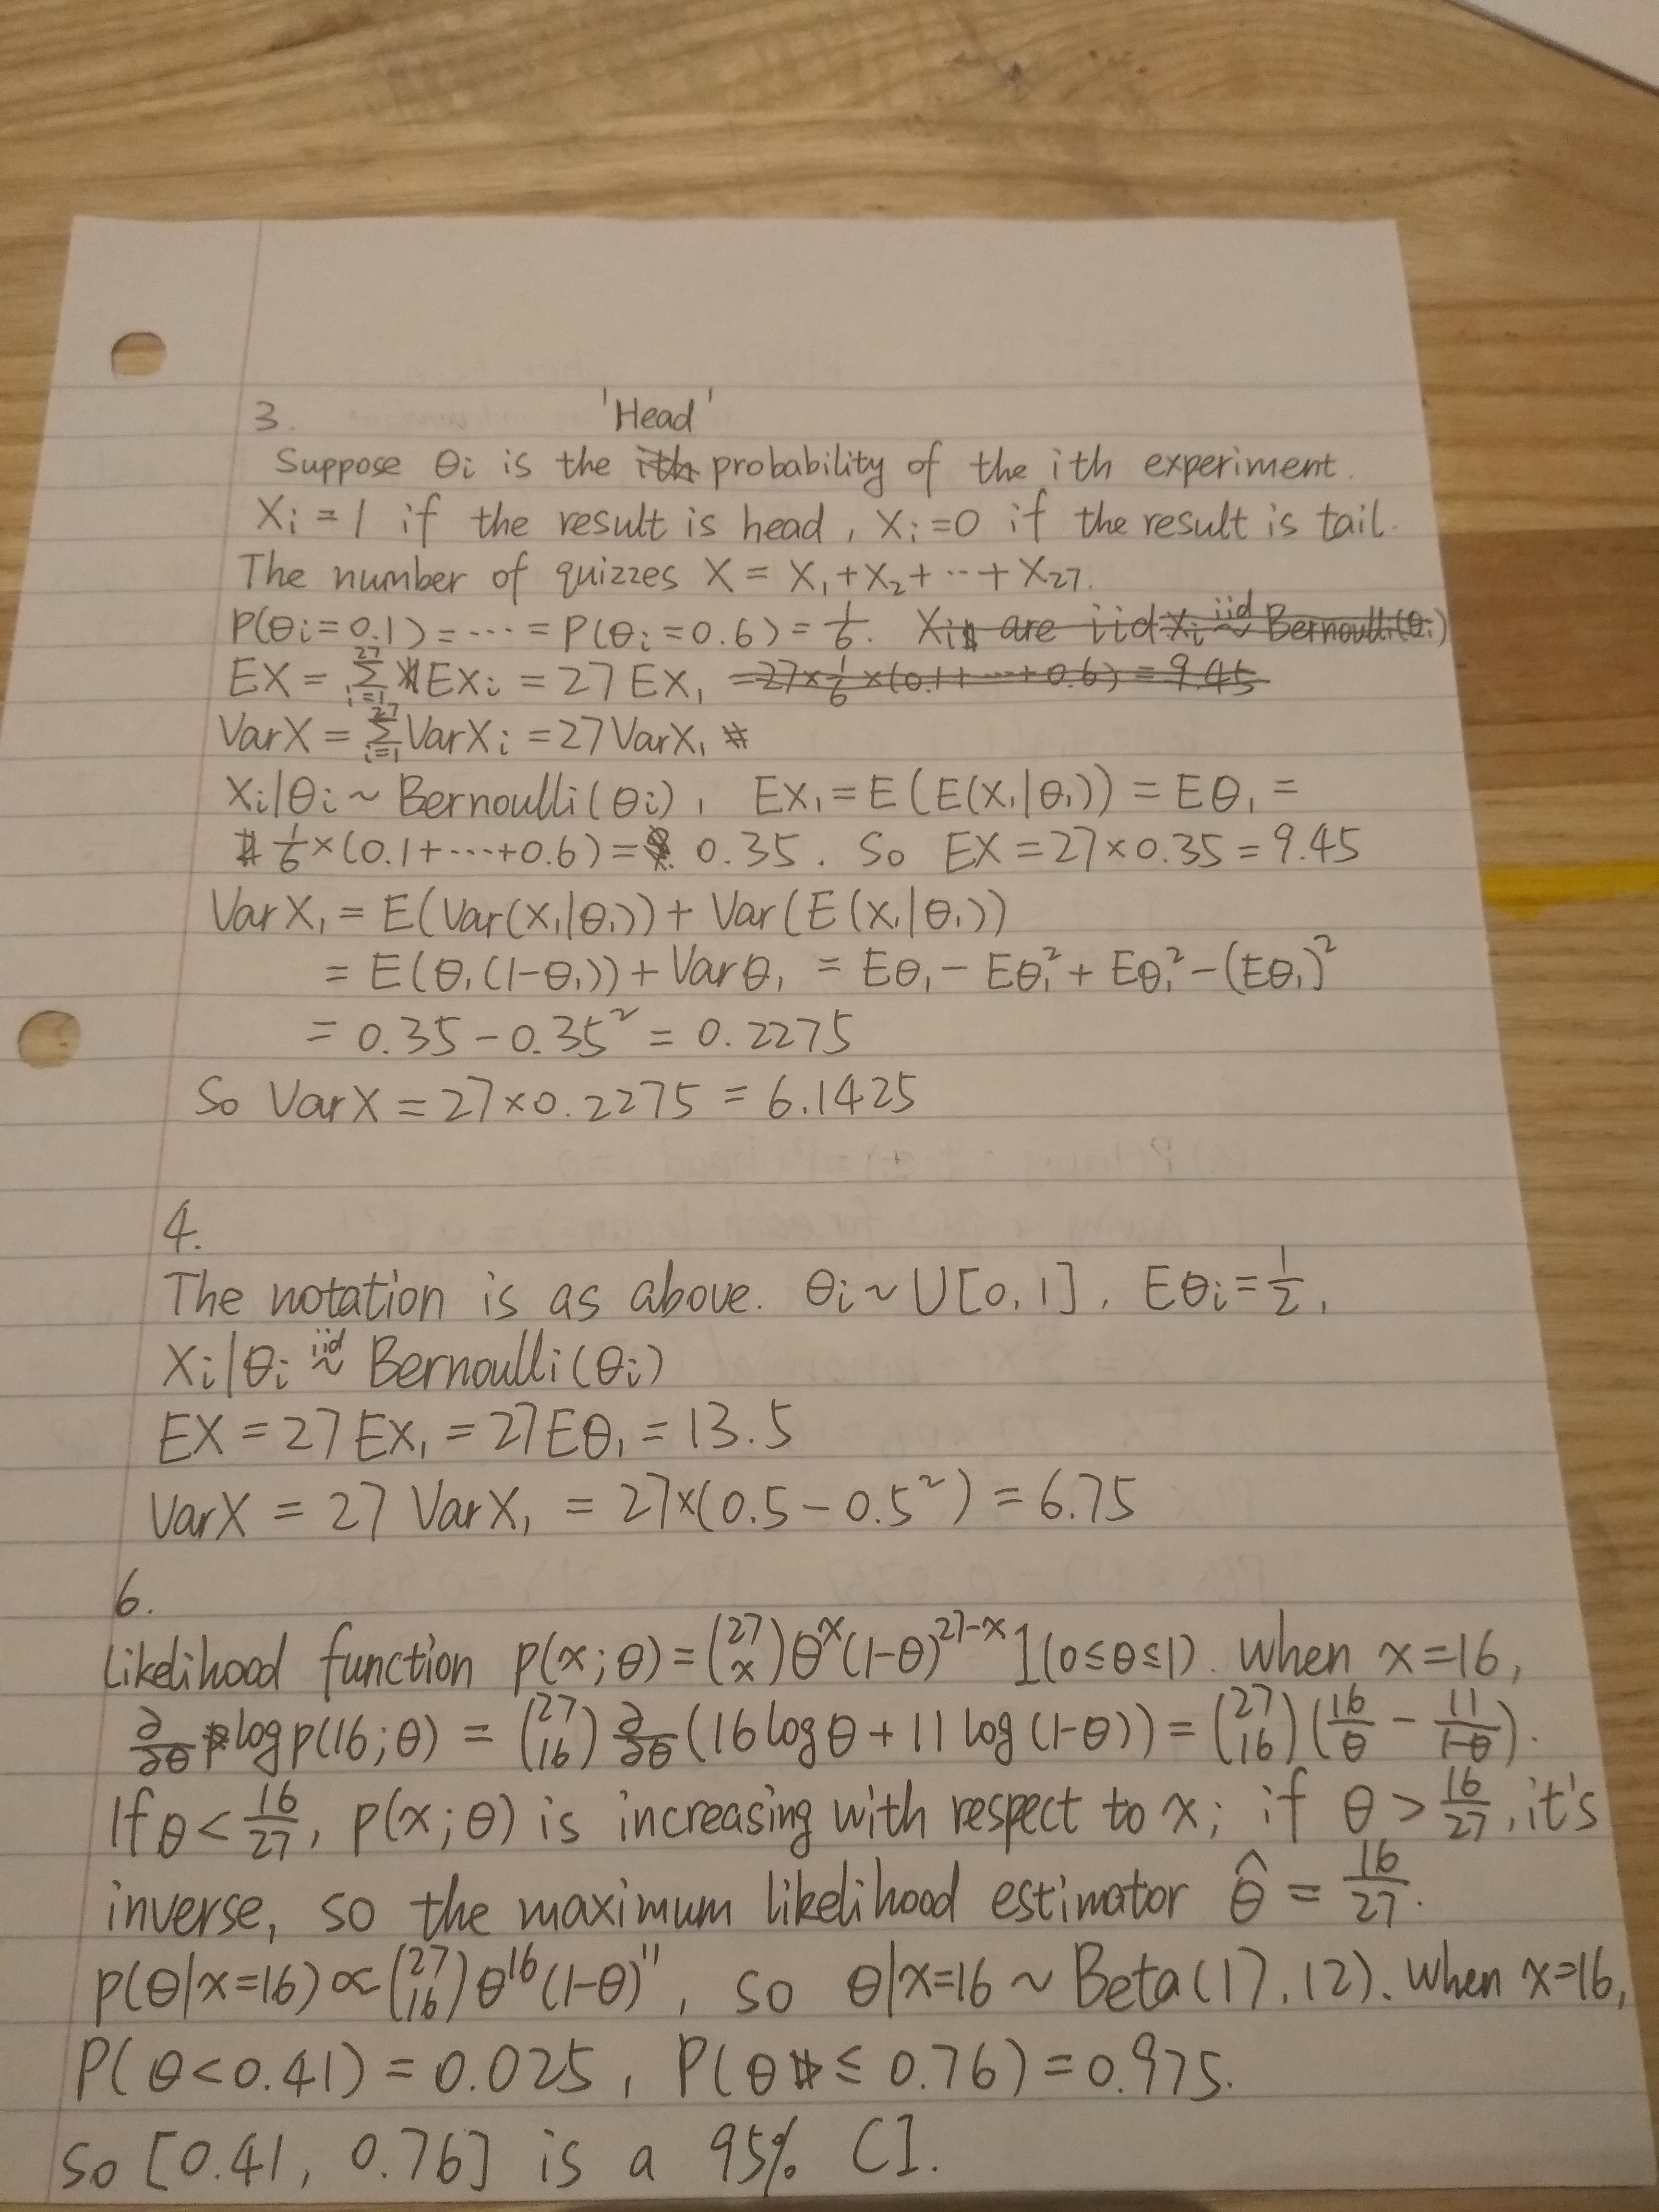 3.
'Head'
Suppose θi is the probability of the ith experiment.
Xi = 1 if the result is head, Xi = 0 if the result is tail.
The number of quizzes X = X₁ + X₂ + ⋯ + X₂₇.
P(θi = 0.1) = ⋯ = P(θi = 0.6) = 1/6. Xi are iid Xi iid~ Bernoulli(θi)
EX = Σ_{i=1}^{27} EXi = 27 EX₁ = 27 × 1/6 × (0.1 + ⋯ + 0.6) = 9.45
VarX = Σ_{i=1}^{27} VarXi = 27 VarX₁
Xi|θi ~ Bernoulli(θi), EX₁ = E(E(X₁|θ₁)) = Eθ₁ =
1/6 × (0.1 + ⋯ + 0.6) = 0.35. So EX = 27 × 0.35 = 9.45
VarX₁ = E(Var(X₁|θ₁)) + Var(E(X₁|θ₁))
= E(θ₁(1-θ₁)) + Varθ₁ = Eθ₁ - Eθ₁² + Eθ₁² - (Eθ₁)²
= 0.35 - 0.35² = 0.2275
So VarX = 27 × 0.2275 = 6.1425
4.
The notation is as above. θi ~ U[0, 1], Eθi = 1/2,
Xi|θi iid~ Bernoulli(θi)
EX = 27 EX₁ = 27 Eθ₁ = 13.5
VarX = 27 VarX₁ = 27 × (0.5 - 0.5²) = 6.75
6.
Likelihood function p(x; θ) = (27 x) θ^x (1-θ)^{27-x} 1(0 ≤ θ ≤ 1). When x = 16,
∂/∂θ log p(16; θ) = (27 16) ∂/∂θ (16 log θ + 11 log (1-θ)) = (27 16) (16/θ - 11/(1-θ)).
If θ < 16/27, p(x; θ) is increasing with respect to x; if θ > 16/27, it's
inverse, so the maximum likelihood estimator θ̂ = 16/27.
p(θ|x=16) ∝ (27 16) θ^16 (1-θ)^11, so θ|x=16 ~ Beta(17, 12). When x=16,
P(θ < 0.41) = 0.025, P(θ ≤ 0.76) = 0.975.
So [0.41, 0.76] is a 95% CI.